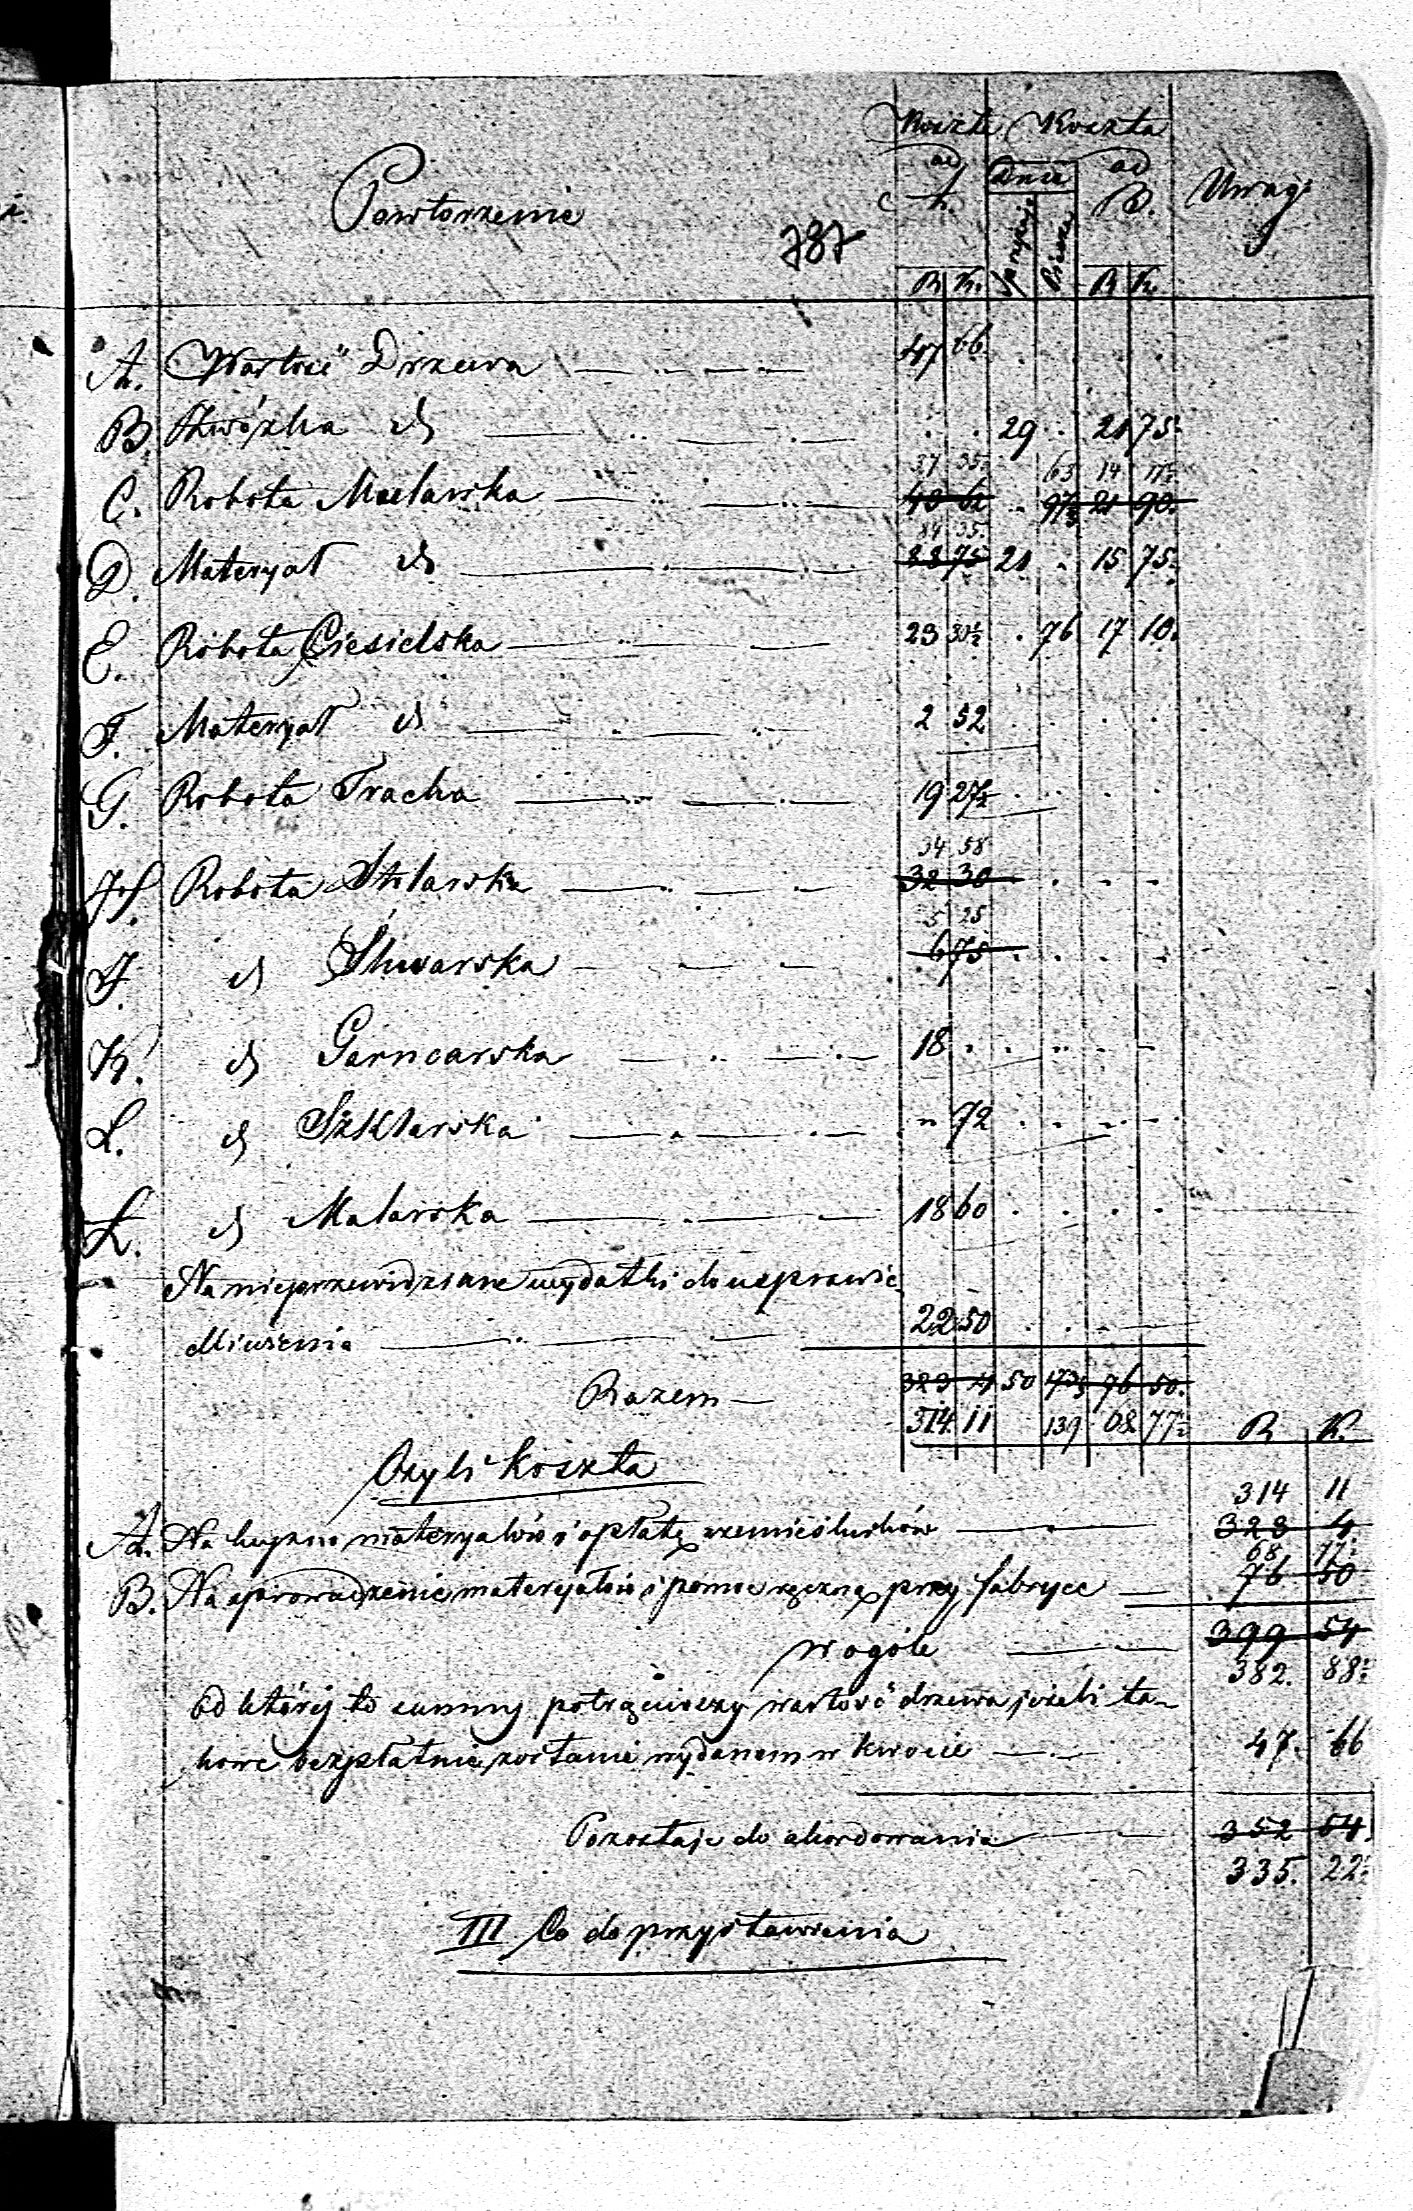 Powtorzenie
787
Koszta Koszta
ad ad
A. Dnie B. Uwagi
sprzężaj. Piesze
R K. R K.
A. Wartość Drzewa 47 66
B. Zwózka d 29 21 75
37 35 63 14 17½
C. Robota Mularska 43 62 97⅓ 21 90
84 35
D. Materyał d 88 75 21 15 75
E. Robota Ciesielska 23 30½ 76 17 10
F. Materyał d 2 52
G. Robota Tracka 19 27½
34 58
H. Robota Stolarska 32 30
5 25
I. d Slusarska 6 75
K. d Garncarska 18
L. d Szklarska „ 72
Ł. d Malarska 18 60
Na nieprzewidziane wydatki do usprawie
dliwienia 22 50
Razem 323 4 50 173⅓ 76 50
314 11 139 68 77½
R K.
Czyli koszta
314 11
A. Na kupno materyałów i opłatę rzemieślników 323 4
68 77½
B. Na sprowadzenie materyałów i pomoc ręczną przy fabryce 76 50
W ogóle 399 54
382. 88½
od któréj to summy potrąciwszy wartość drzewa jeżeli ta-
kowe bezpłatnie zostanie wydanem w kwocie 47. 66
Pozostaje do akordowania 352 54
335. 22½
III Co do przystawienia